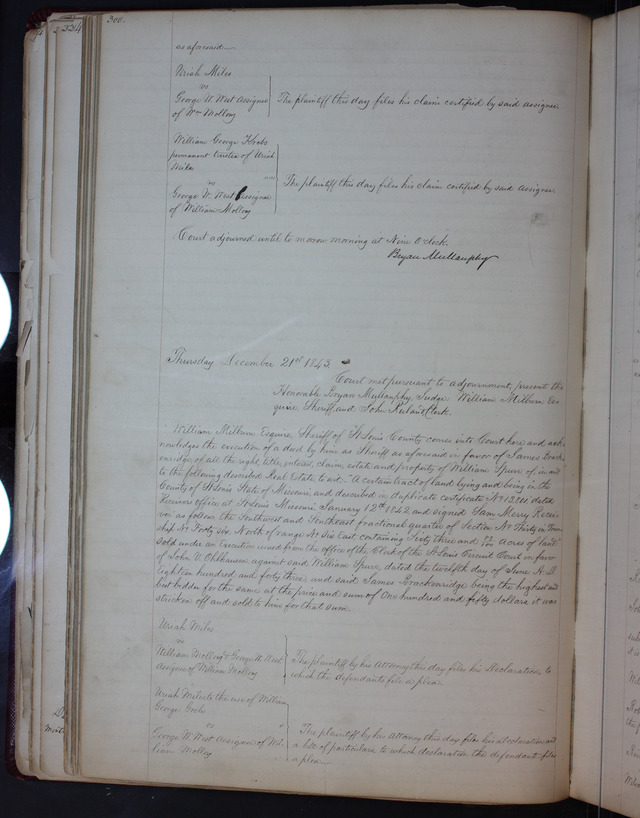 300.
334
as aforesaid—
Uriah Miles
vs
George W. West Assignee
of Wm Molloy
The plaintiff this day files his claim certified by said assignee
William George
permanent of Uriah
Miles
vs
George W. West Assignee
of William Molloy
The plaintiff this day files his claim certified by said assignee
Court adjourned until to morrow morning at Nine O'clock.
Bryan Mullanphy
Thursday December 21st 1843.
Court met pursuant to adjournment, present the
Honorable Bryan Mullanphy Judge William Milburn Es-
quire, Sheriff and John Clerk.
William Milburn Esquire Sheriff of St Louis County comes into Court here and ack-
nowledges the execution of a deed by him as Sheriff as aforesaid in favor of James Brack-
enridge of all the right, title, interest, claim, estate and property of William Spurr of, in and
to the following described Real Estate to wit: "A certain tract of land lying and being in the
County of St Louis State of Missouri, and described in duplicate certificate No dated
Receivers office at St Louis Missouri January 12th 1842 and signed Sam Merry Recei-
ver as follows the Southwest and Southeast fractional quarter of Section No Thirty in Town
ship No Forty six, North of range No Six East containing Sixty three and acres of land"
sold under an Execution issued from the office of the Clerk of the St Louis Circuit Court in favor
of John W. against said William Spurr, dated the twelfth day of June A. D.
Eighteen hundred and forty three and said James Brackenridge being the highest and
best bidder for the same at the price and sum of One hundred and fifty dollars it was
stricken off and sold to him for that sum.
Uriah Miles
vs
William Molloy & George W. West
Assignee of William Molloy
The plaintiff by his Attorney this day files his Declaration, to
which the defendants file a plea.
Uriah Miles to the use of William
George
vs
George W West Assignee of Wil-
liam Molloy
The plaintiff by his Attorney this day files his declaration and
a bill of particulars to which declaration the defendant files
a plea—